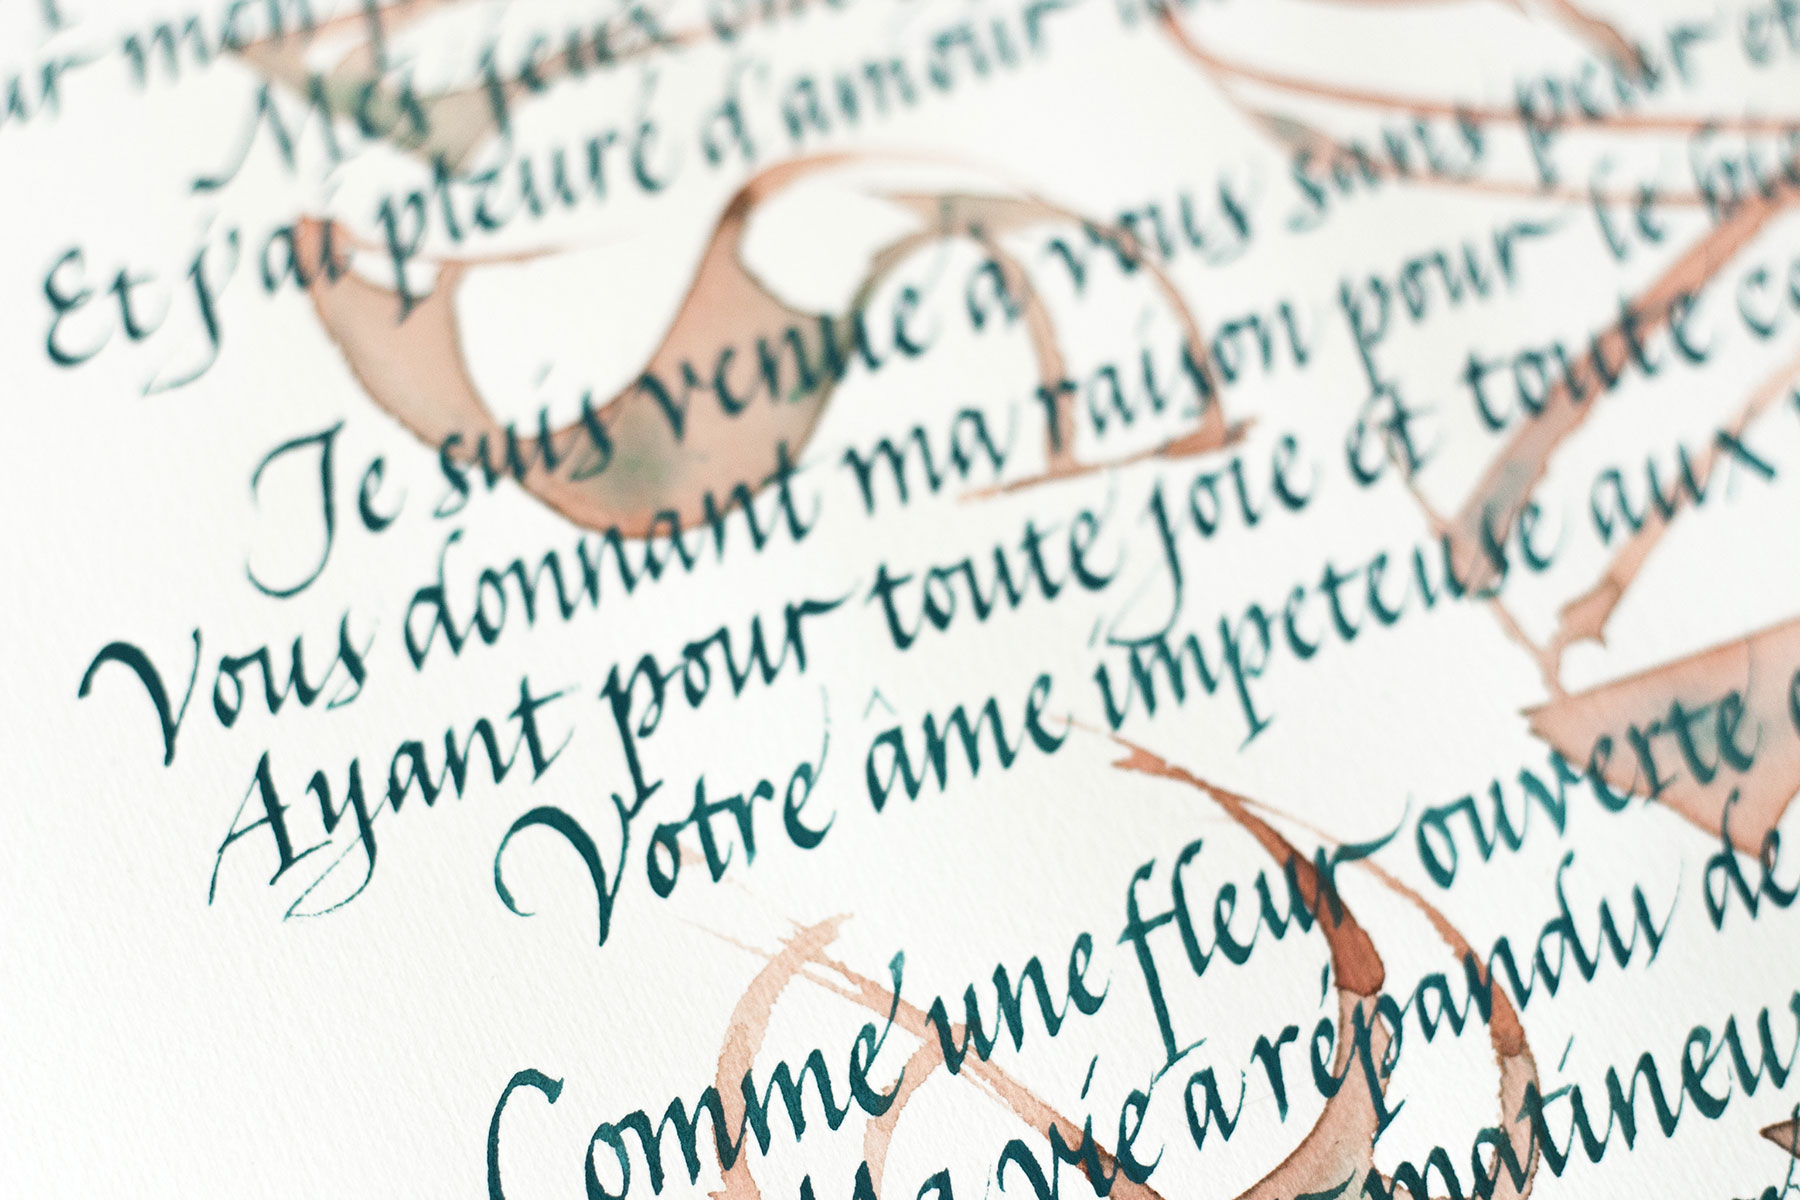 ur mon
Mes yeux ont
Et j'ai pleuré d'amour
Je suis venue à vous sans peur et
Vous donnant ma raison pour le
Ayant pour toute joie et toute
Votre âme impeteuse aux
Comme une fleur ouverte
Ma vie a répandu de
matineu